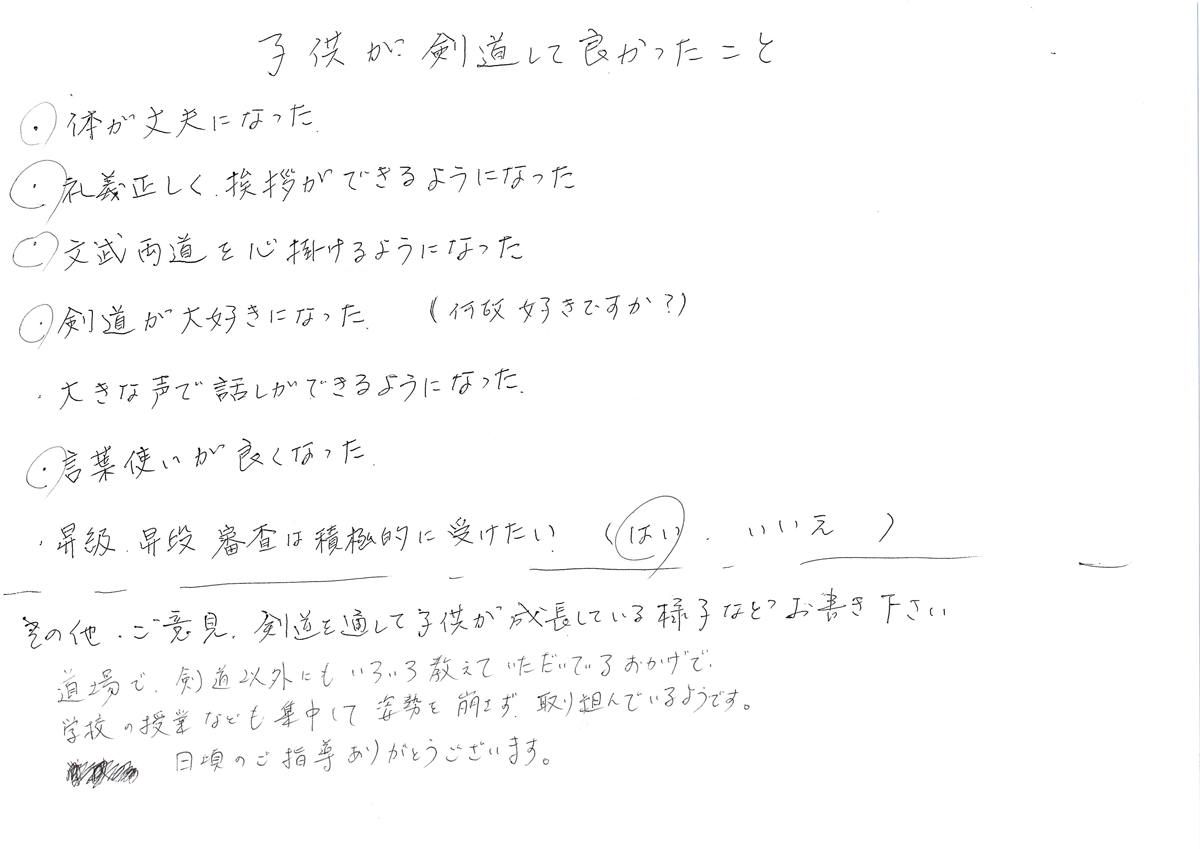 子供が剣道して良かったこと
・体が丈夫になった.
・礼義正しく.挨拶ができるようになった
・文武両道を心掛けるようになった
・剣道が大好きになった. (何故好きですか?)
・大きな声で話しができるようになった.
・言葉使いが良くなった.
・昇級.昇段審査は積極的に受けたい (はい . いいえ )
その他.ご意見.剣道を通して子供が成長している様子などお書き下さい
道場で、剣道以外にもいろいろ教えていただいているおかげで、
学校の授業なども集中して姿勢を崩さず、取り組んでいるようです。
日頃のご指導ありがとうございます。